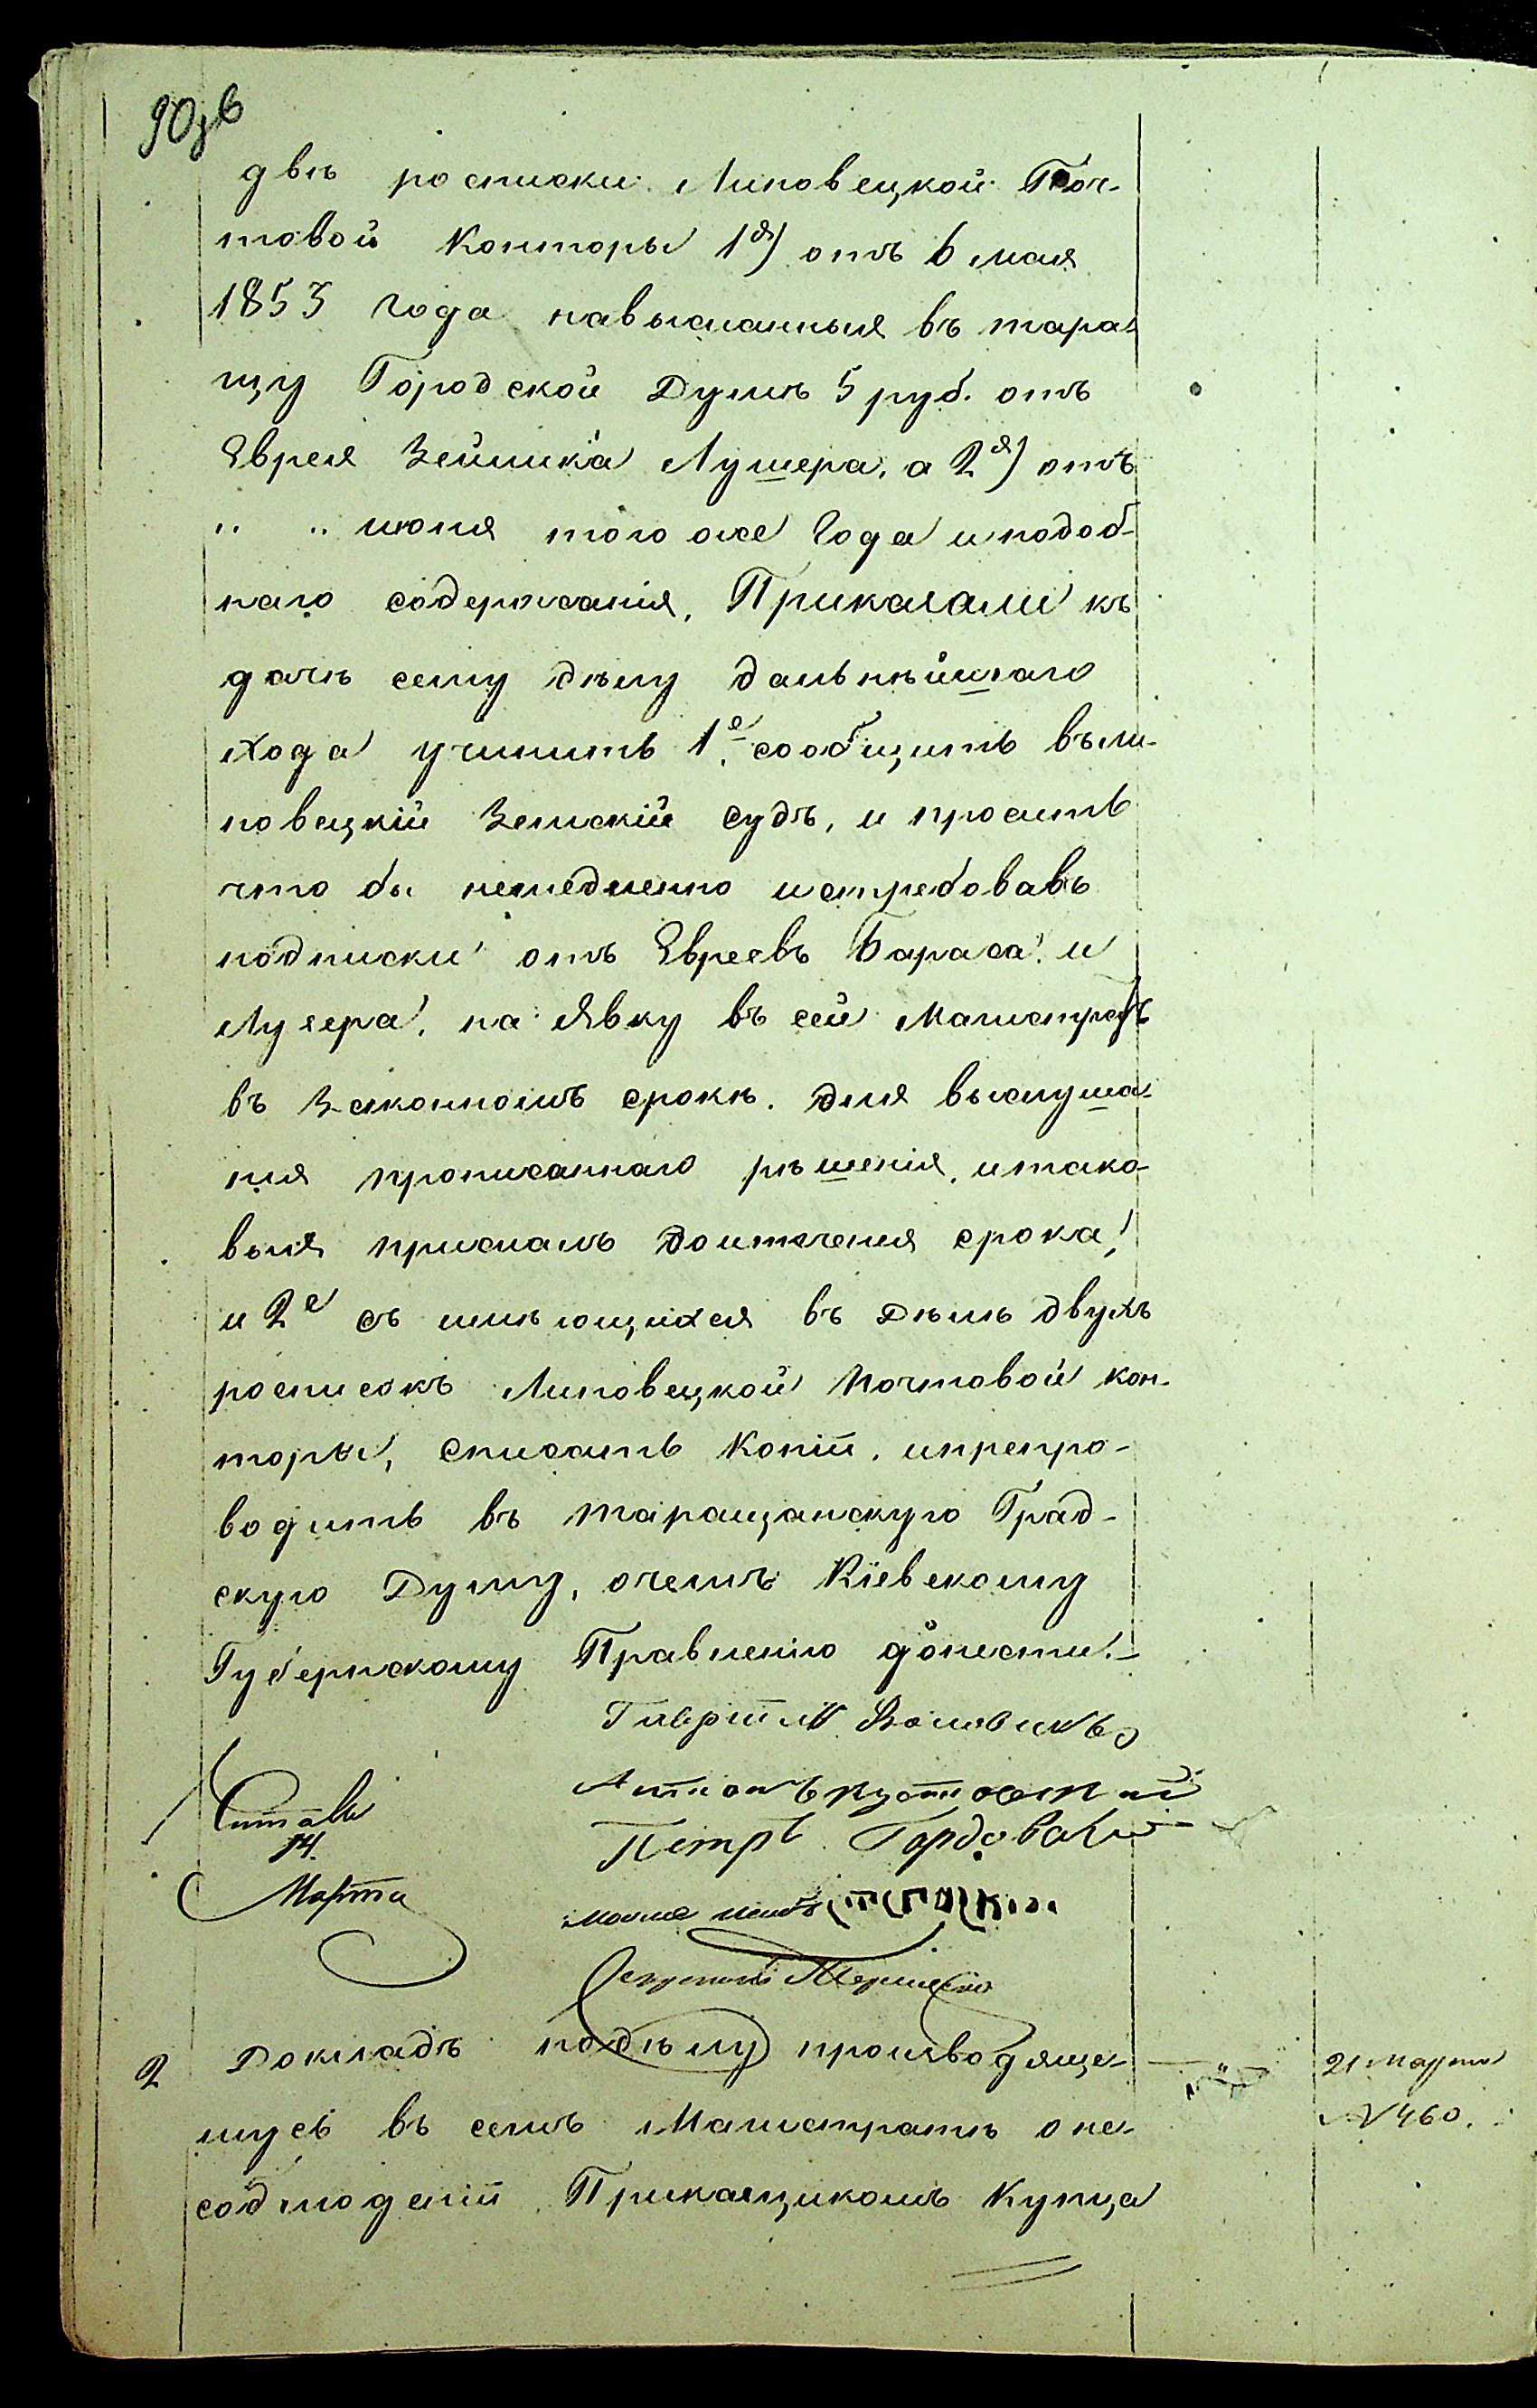 90 зв
двѣ росписки Липовецкой Поч-
товой Конторы 1я) отъ 6 мая
1853 года на высланныя въ тара-
щу Городской Думѣ 5 руб. отъ
Еврея Зейлика Лузера, а 2я) отъ
" " июня того же года и подоб-
наго содержанія, Приказали къ
дачѣ сему дѣлу дальнѣйшаго
хода учинить 1е сообщить въ Ли-
повецкій Земскій судъ, и просить
что бы немедленно истребовавъ
подписки отъ Евреевъ Бараса и
Лузера, на явку въ сей Магистратъ
въ Законномъ срокѣ, для выслуша-
ния прописаннаго рѣшенія, и тако-
выя прислалъ до истеченія срока,
и 2е съ имѣющихся въ дѣлѣ двухъ
росписокъ Липовецкой Почтовой кон-
торы, списать Копіи, и препро-
водить въ таращанскую Град-
скую Думу, о чемъ Кіевскому
Губернскому Правленію донести.
Гавріилъ
Антонъ
Петръ
Читалъ
14
Марта
Секретарь
2 Докладъ по дѣлу производяще-
муся въ семъ Магистратѣ о не-
соблюденіи Прикащикомъ Купца
21 марта
№ 460.